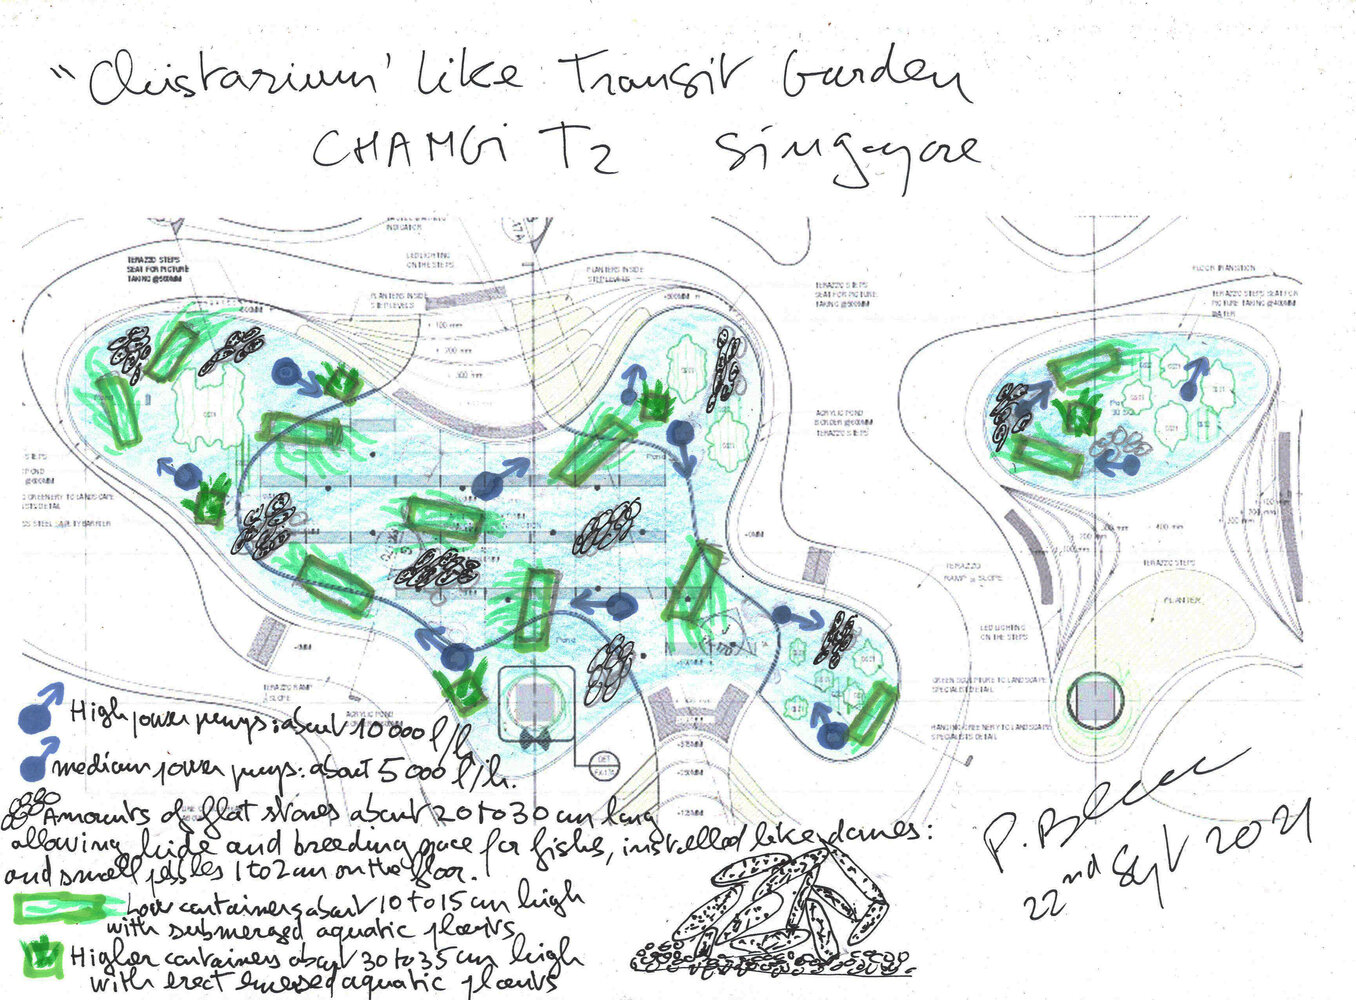 "Christarium" like Transit Garden
CHANGi T2 Singapore
TERAZZO STEPS
SEAT FOR PICTURE
TAKING @500MM
INDICATOR
LED LIGHTING
ON THE STEPS
PLANTERS INSIDE
STEP LEVELS
PLANTERS INSIDE
STEP LEVELS
+ 100 mm
+ 200 mm
+ 300 mm
TERAZZO STEPS
SEAT FOR PICTURE
TAKING @500MM
FLOOR TRANSITION
TERAZZO STEPS SEAT FOR
PICTURE TAKING @400MM
WATER
ACRYLIC POND
BORDER @600MM
TERAZZO STEPS
Pond
Pond
TERAZZO
RAMP @ SLOPE
LED LIGHTING
ON THE STEPS
TERAZZO STEPS
PLANTER
GREEN SCULPTURE TO LANDSCAPE
SPECIALISTS DETAIL
HANGING GREENERY TO LANDSCAPE
SPECIALISTS DETAIL
TERAZZO RAMP
SLOPE
High power pumps: about 10 000 l/h
medium power pumps: about 5 000 l/h.
Amounts of flat stones about 20 to 30 cm long
allowing hide and breeding place for fishes, installed like dames:
and small pebbles 1 to 2 cm on the floor.
Low containers about 10 to 15 cm high
with submerged aquatic plants
Higher containers about 30 to 35 cm high
with erect emersed aquatic plants
P. Blanc
22nd Sept 2021